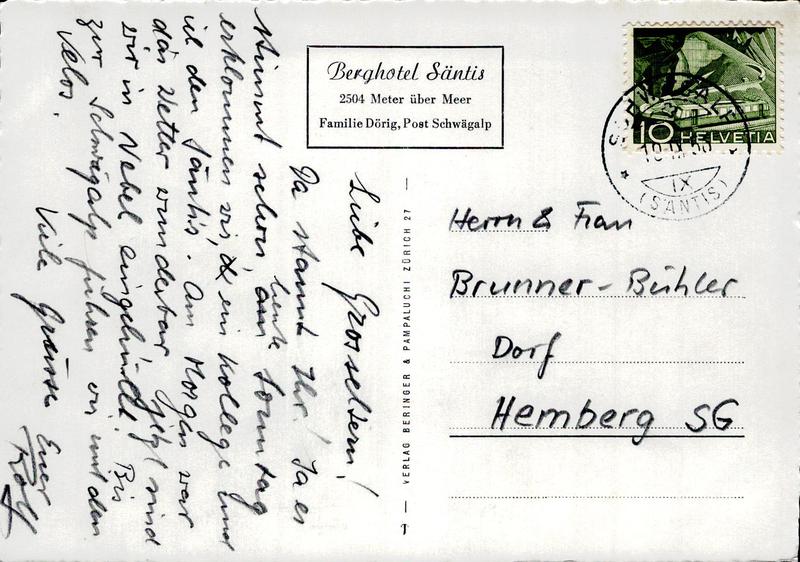 Berghotel Säntis
2504 Meter über Meer
Familie Dörig, Post Schwägalp
Liebe Grosseltern!
Da staunt Ihr! Ja es
stimmt schon, heute am Sonntag
erklommen wir, ein Kollege und
ich den Säntis. Am Morgen war
das Wetter wunderbar, jetzt sind
wir in Nebel eingehüllt! Bis
zur Schwägalp fuhren wir mit den
Velos.
Viele Grüsse Euer
Rolf
VERLAG BERINGER & PAMPALUCHI ZÜRICH 27
10 HELVETIA
SCHWÄGALP
IX
(SÄNTIS)
Herrn & Frau
Brunner-Bühler
Dorf
Hemberg SG